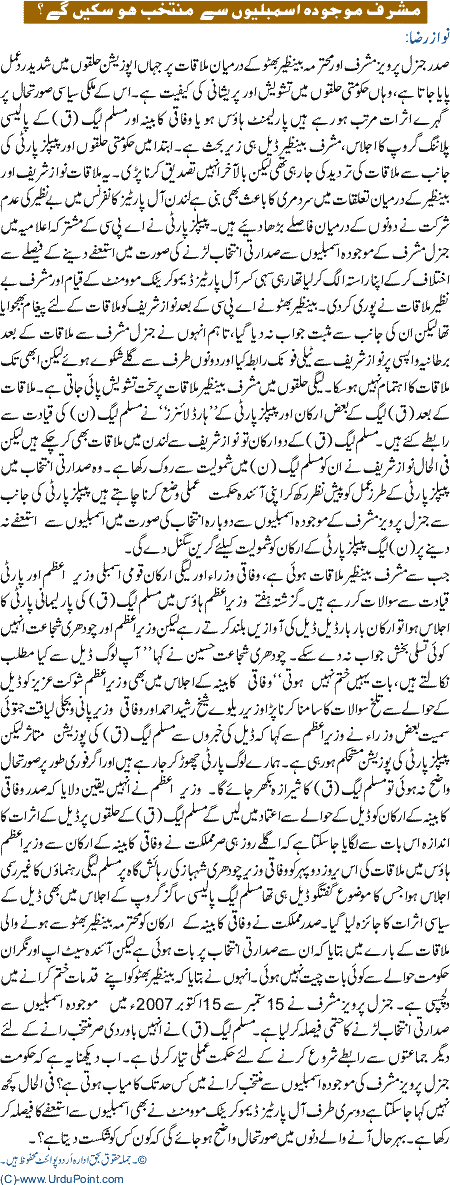 مشرف موجودہ اسمبلیوں سے منتخب ہو سکیں گے؟
نواز رضا:
صدر جنرل پرویز مشرف اور محترمہ بینظیر بھٹو کے درمیان ملاقات پر جہاں اپوزیشن حلقوں میں شدید ردعمل
پایا جاتا ہے، وہاں حکومتی حلقوں میں تشویش اور پریشانی کی کیفیت ہے۔ اس کے ملکی سیاسی صورتحال پر
گہرے اثرات مرتب ہو رہے ہیں پارلیمنٹ ہاؤس ہو یا وفاقی کابینہ اور مسلم لیگ (ق) کے پالیسی
پلاننگ گروپ کا اجلاس، مشرف بینظیر ڈیل ہی زیر بحث ہے۔ ابتدا میں حکومتی حلقوں اور پیپلز پارٹی کی
جانب سے ملاقات کی تردید کی جا رہی تھی لیکن بالآخر انہیں تصدیق کرنا پڑی۔ یہ ملاقات نواز شریف اور
بینظیر کے درمیان تعلقات میں سردمہری کا باعث بھی بنی ہے لندن آل پارٹیز کانفرنس میں بے نظیر کی عدم
شرکت نے دونوں کے درمیان فاصلے بڑھا دیئے ہیں۔ پیپلز پارٹی نے اے پی سی کے مشترکہ اعلامیہ میں
جنرل مشرف کے موجودہ اسمبلیوں سے صدارتی انتخاب لڑنے کی صورت میں استعفے دینے کے فیصلے سے
اختلاف کر کے اپنا راستہ الگ کر لیا تھا رہی سہی کسر آل پارٹیز ڈیموکریٹک موومنٹ کے قیام اور مشرف بے
نظیر ملاقات نے پوری کر دی۔ بینظیر بھٹو نے اے پی سی کے بعد نواز شریف کو ملاقات کے لئے پیغام بھجوایا
تھا لیکن ان کی جانب سے مثبت جواب نہ دیا گیا، تاہم انہوں نے جنرل مشرف سے ملاقات کے بعد
برطانیہ واپسی پر نواز شریف سے ٹیلی فونک رابطہ کیا اور دونوں طرف سے گلے شکوے ہوئے لیکن ابھی تک
ملاقات کا اہتمام نہیں ہو سکا۔ لیگی حلقوں میں مشرف بینظیر ملاقات پر سخت تشویش پائی جاتی ہے۔ ملاقات
کے بعد (ق) لیگ کے بعض ارکان اور پیپلز پارٹی کے ’’ہارڈ لائنرز‘‘ نے مسلم لیگ (ن) کی قیادت سے
رابطے کئے ہیں۔ مسلم لیگ (ق) کے دو ارکان تو نواز شریف سے لندن میں ملاقات بھی کر چکے ہیں لیکن
فی الحال نواز شریف نے ان کو مسلم لیگ (ن) میں شمولیت سے روک رکھا ہے۔ وہ صدارتی انتخاب میں
پیپلز پارٹی کے طرز عمل کو پیش نظر رکھ کر اپنی آئندہ حکمت عملی وضع کرنا چاہتے ہیں پیپلز پارٹی کی جانب
سے جنرل پرویز مشرف کے موجودہ اسمبلیوں سے دوبارہ انتخاب کی صورت میں اسمبلیوں سے استعفے نہ
دینے پر (ن) لیگ پیپلز پارٹی کے ارکان کو شمولیت کیلئے گرین سگنل دے گی۔
جب سے مشرف بینظیر ملاقات ہوئی ہے، وفاقی وزراء اور لیگی ارکان قومی اسمبلی وزیر اعظم اور پارٹی
قیادت سے سوالات کر رہے ہیں۔ گزشتہ ہفتے وزیر اعظم ہاؤس میں مسلم لیگ (ق) کی پارلیمانی پارٹی کا
اجلاس ہوا تو ارکان بار بار ڈیل ڈیل کی آوازیں بلند کرتے رہے لیکن وزیر اعظم اور چودھری شجاعت انہیں
کوئی تسلی بخش جواب نہ دے سکے۔ چودھری شجاعت حسین نے کہا ’’آپ لوگ ڈیل سے کیا مطلب
نکالتے ہیں، بات یہیں ختم نہیں ہوتی‘‘ وفاقی کابینہ کے اجلاس میں بھی وزیر اعظم شوکت عزیز کو ڈیل
کے حوالے سے تلخ سوالات کا سامنا کرنا پڑا وزیر ریلوے شیخ رشید احمد اور وفاقی وزیر پانی و بجلی لیاقت جتوئی
سمیت بعض وزراء نے وزیر اعظم سے کہا کہ ڈیل کی خبروں سے مسلم لیگ (ق) کی پوزیشن متاثر لیکن
پیپلز پارٹی کی پوزیشن مستحکم ہو رہی ہے۔ ہمارے لوگ پارٹی چھوڑ کر جا رہے ہیں اور اگر فوری طور پر صورتحال
واضح نہ ہوئی تو مسلم لیگ (ق) کا شیرازہ بکھر جائے گا۔ وزیر اعظم نے انہیں یقین دلایا کہ صدر وفاقی
کابینہ کے ارکان کو ڈیل کے حوالے سے اعتماد میں لیں گے مسلم لیگ (ق) کے حلقوں پر ڈیل کے اثرات کا
اندازہ اس بات سے لگایا جا سکتا ہے کہ اگلے روز ہی صدر مملکت نے وفاقی کابینہ کے ارکان سے وزیر اعظم
ہاؤس میں ملاقات کی اس بروز دوپہر کو وفاقی وزیر چودھری شہباز کی رہائش گاہ پر مسلم لیگی رہنماؤں کا غیر رسمی
اجلاس ہوا جس کا موضوع گفتگو ڈیل ہی تھا مسلم لیگ پالیسی ساز گروپ کے اجلاس میں بھی ڈیل کے
سیاسی اثرات کا جائزہ لیا گیا۔ صدر مملکت نے وفاقی کابینہ کے ارکان کو محترمہ بینظیر بھٹو سے ہونے والی
ملاقات کے بارے میں بتایا کہ ان سے صدارتی انتخاب پر بات ہوئی ہے لیکن آئندہ سیٹ اپ اور نگران
حکومت حوالے سے کوئی بات چیت نہیں ہوئی۔ انہوں نے بتایا کہ بینظیر بھٹو کو اپنے مقدمات ختم کرانے میں
دلچسپی ہے۔ جنرل پرویز مشرف نے 15 ستمبر سے 15 اکتوبر 2007ء میں موجودہ اسمبلیوں سے
صدارتی انتخاب لڑنے کا حتمی فیصلہ کر لیا ہے۔ مسلم لیگ (ق) نے انہیں باوردی صدر منتخب رانے کے لئے
دیگر جماعتوں سے رابطے شروع کرنے کے لئے حکمت عملی تیار کر لی ہے۔ اب دیکھنا یہ ہے کہ حکومت
جنرل پرویز مشرف کی موجودہ اسمبلیوں سے منتخب کرانے میں کس حد تک کامیاب ہوتی ہے؟ فی الحال کچھ
نہیں کہا جا سکتا ہے دوسری طرف آل پارٹیز ڈیموکریٹک موومنٹ نے بھی اسمبلیوں سے استعفے کا فیصلہ کر
رکھا ہے۔ بہرحال آنے والے دنوں میں صورتحال واضح ہو جائے گی کہ کون کس کو شکست دیتا ہے؟۔
©۔ جملہ حقوق بحق ادارہ اُردو پوائنٹ محفوظ ہیں۔
(C)-www.UrduPoint.com